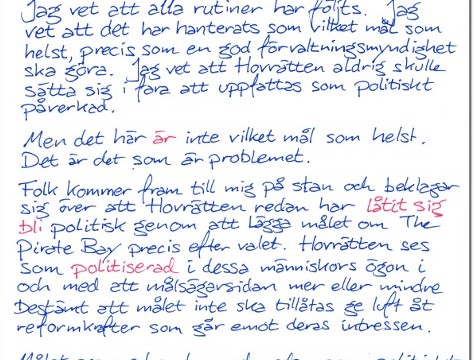 Jag vet att alla rutiner har följts. Jag
vet att det har hanterats som vilket mål som
helst, precis som en god förvaltningsmyndighet
ska göra. Jag vet att Hovrätten aldrig skulle
sätta sig i fara att uppfattas som politiskt
påverkad.
Men det här är inte vilket mål som helst.
Det är det som är problemet.
Folk kommer fram till mig på stan och beklagar
sig över att Hovrätten redan har låtit sig
bli politisk genom att lägga målet om The
Pirate Bay precis efter valet. Hovrätten ses
som politiserad i dessa människors ögon i
och med att målsägarsidan mer eller mindre
bestämt att målet inte ska tillåtas ge luft åt
reformkrafter som går emot deras intressen.